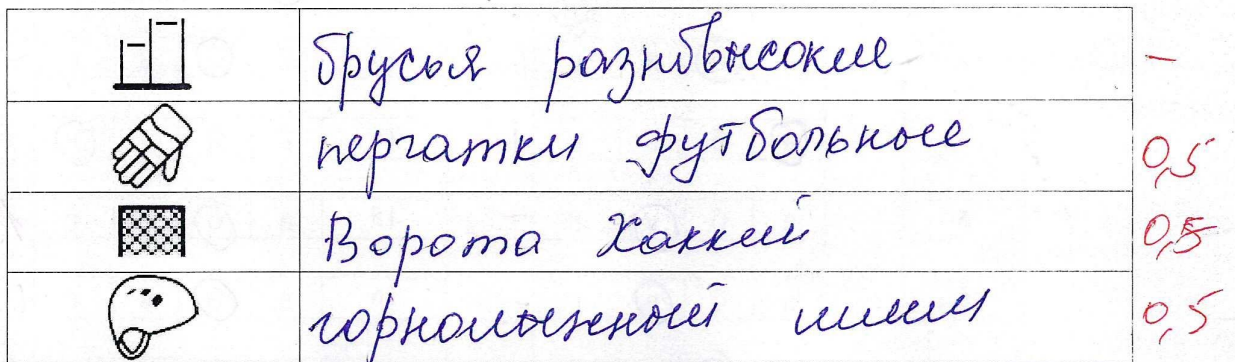 брусья разновысокие —
пергатки футбольные 0,5
Ворота Хоккей 0,5
горнолыжный шлем 0,5